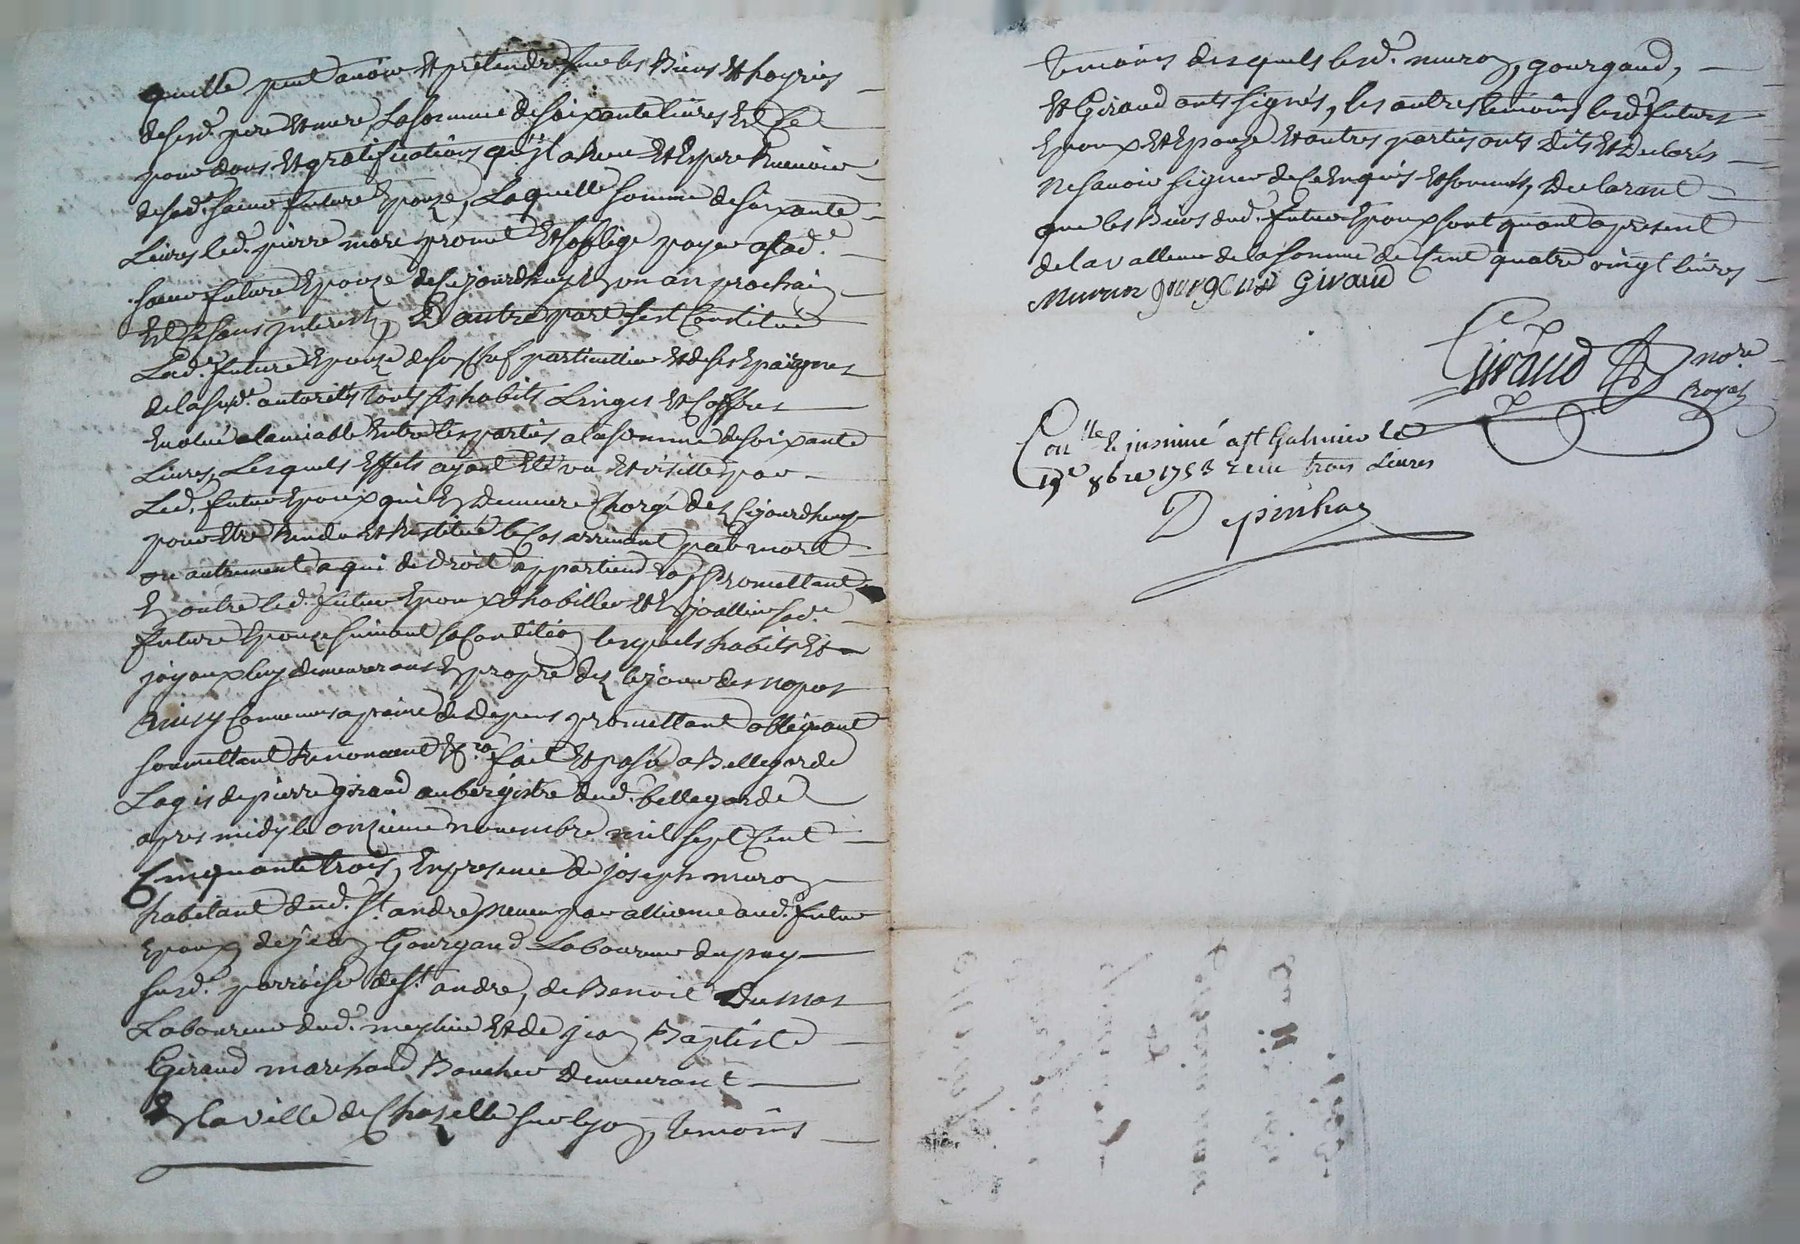 quelle peut avoir et pretendre sur les Biens et hoyries
desesd. pere et mere, La somme de soixante livres Et Ce
pour dons et gratifications quil a Reeu Et Espere Recevoir
desad. future Epouze, Laquelle somme de soixante
Livres led. pierre more promet Et soblige payer a lad.
future Epouze de Cejourdhuy En un an prochain
Et Ce sans Interest, D autre part sest Constitué
Lad. future Epouze de son Chef particullier Et de ses Epargnes
de la susd. autorité tous ses habits Linges Et Coffres
Evalué alamiable Entre les parties a la somme de soixante
Livres, Lesquels Effets ayant Eté vu Et visitté par
Led. futur Epoux qui En Demeure Chargé dez Cejourdhuy
pour Etre Rendu Et Restitué le Cas arrivant par mort
ou autrement a qui de droit appartiendra, Promettant
En outre led. futur Epoux dhabiller Et Enjoallier sad.
future Epouze suivant sa Condition lesquels habits Et
joyaux luy demeureront En propre dez le jour des nopces
ainsy Convenus a peine de Depens promettant obligeant
soumettant Renonceant &ra. fait Et passé a Bellegarde
Logis de pierre giraud aubergiste dud. bellegarde
apres midy le onzieme novembre mil sept Cent
Cinquante trois, En presence de joseph muron
habitant dud. St. andre, neveu par alliance aud. futur
Epoux, de jean Gourgaud Laboureur du puy
susd. parroisse de St. andre, de Benoit Dumas
Laboureur dud. meylieu Et de jean Baptiste
Giraud marchand Boucher Demeurant
En la ville de Chazelle sur lyon, temoins
temoins desquels lesd. muron, gourgaud,
Et Giraud onts signés, les autres temoins lesd. futurs
Epoux Et Epouze Et autres parties onts Dits Et Declarés
Ne savoir signer de Ce Enquis Et sommés, Declarant
que les Biens dud. futur Epoux sont quant a present
de la valleur de la somme de Cent quatre vingt livres
Muron gourgaud Giraud
Giraud nore.
Royal
Conlle. Et insinué a St Galmier le
19e 9bre 1753 reeu trois Livres
Depinhac